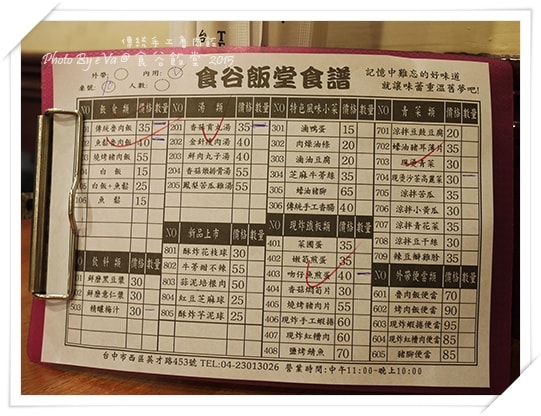 傳統手工魯肉飯
Photo By: e Va@食谷飯堂 2015
外帶: 內用:
桌號:
食谷飯堂食譜
記憶中難忘的好味道
就讓味蕾重溫舊夢吧!
NO 飯食類 價格 數量
101 傳統魯肉飯 35
102 焢肉飯 40
103 燒烤豬肉飯 55
104 白飯 15
105 白飯+魚鬆 25
106 魚鬆 15
NO 湯類 價格 數量
201 香菇貢丸湯 35
202 金針排肉湯 40
203 鮮肉丸子湯 40
204 香菇燉排骨湯 55
205 鳳梨苦瓜雞湯 55
NO 特色風味小菜 價格 數量
301 滷鴨蛋 15
302 肉燥油條 20
303 滷油豆腐 20
304 芝麻牛蒡絲 35
305 蠔油豬腳 65
306 傳統手工香腸 40
NO 青菜類 價格 數量
701 涼拌豆豉豆腐 20
702 蠔油豬耳薄片 35
703 現燙青菜 30
704 現燙沙茶高麗菜 30
705 涼拌苦瓜 35
706 涼拌小黃瓜 30
707 涼拌青花菜 30
708 涼拌豆干絲 30
709 辣豆瓣雞胗 35
NO 飲料類 價格 數量
501 鮮磨黑豆漿 30
502 鮮磨薏仁漿 30
503 精釀梅汁 30
NO 新品上市 價格 數量
801 酥炸花枝球 30
802 牛蒡甜不辣 55
803 蒜泥培根肉 50
804 紅豆芝麻球 25
805 酥炸芋泥球 25
NO 現炸鐵板類 價格 數量
401 菜圃蛋 35
402 嫩筍煎蛋 35
403 吻仔魚煎蛋 40
404 香菇燜筍片 30
405 燒烤豬肉片 55
406 現炸手工蝦捲 60
407 現炸紅糟肉 60
408 鹽烤鯖魚 70
NO 外帶便當類 價格 數量
601 魯肉飯便當 70
602 烤肉飯便當 90
603 現炸蝦捲便當 95
604 現炸紅糟便當 85
605 豬腳便當 85
台中市西區英才路453號 TEL:04-23013026 營業時間:中午11:00-晚上10:00